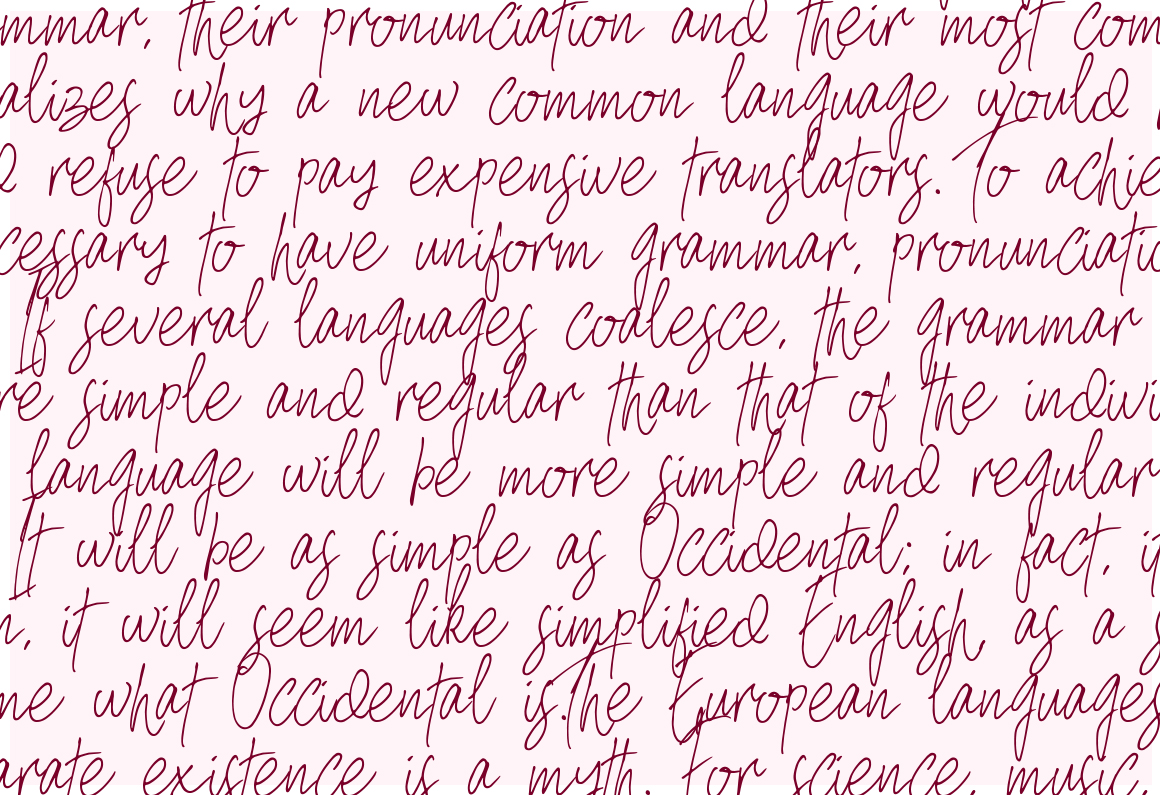 mmar, their pronunciation and their most com
alizes why a new common language would
d refuse to pay expensive translators. To achie
cessary to have uniform grammar, pronunciatio
If several languages coalesce, the grammar
re simple and regular than that of the indivi
language will be more simple and regular
It will be as simple as Occidental; in fact, it
n, it will seem like simplified English, as a s
me what Occidental is.The European languages
arate existence is a myth. For science, music,